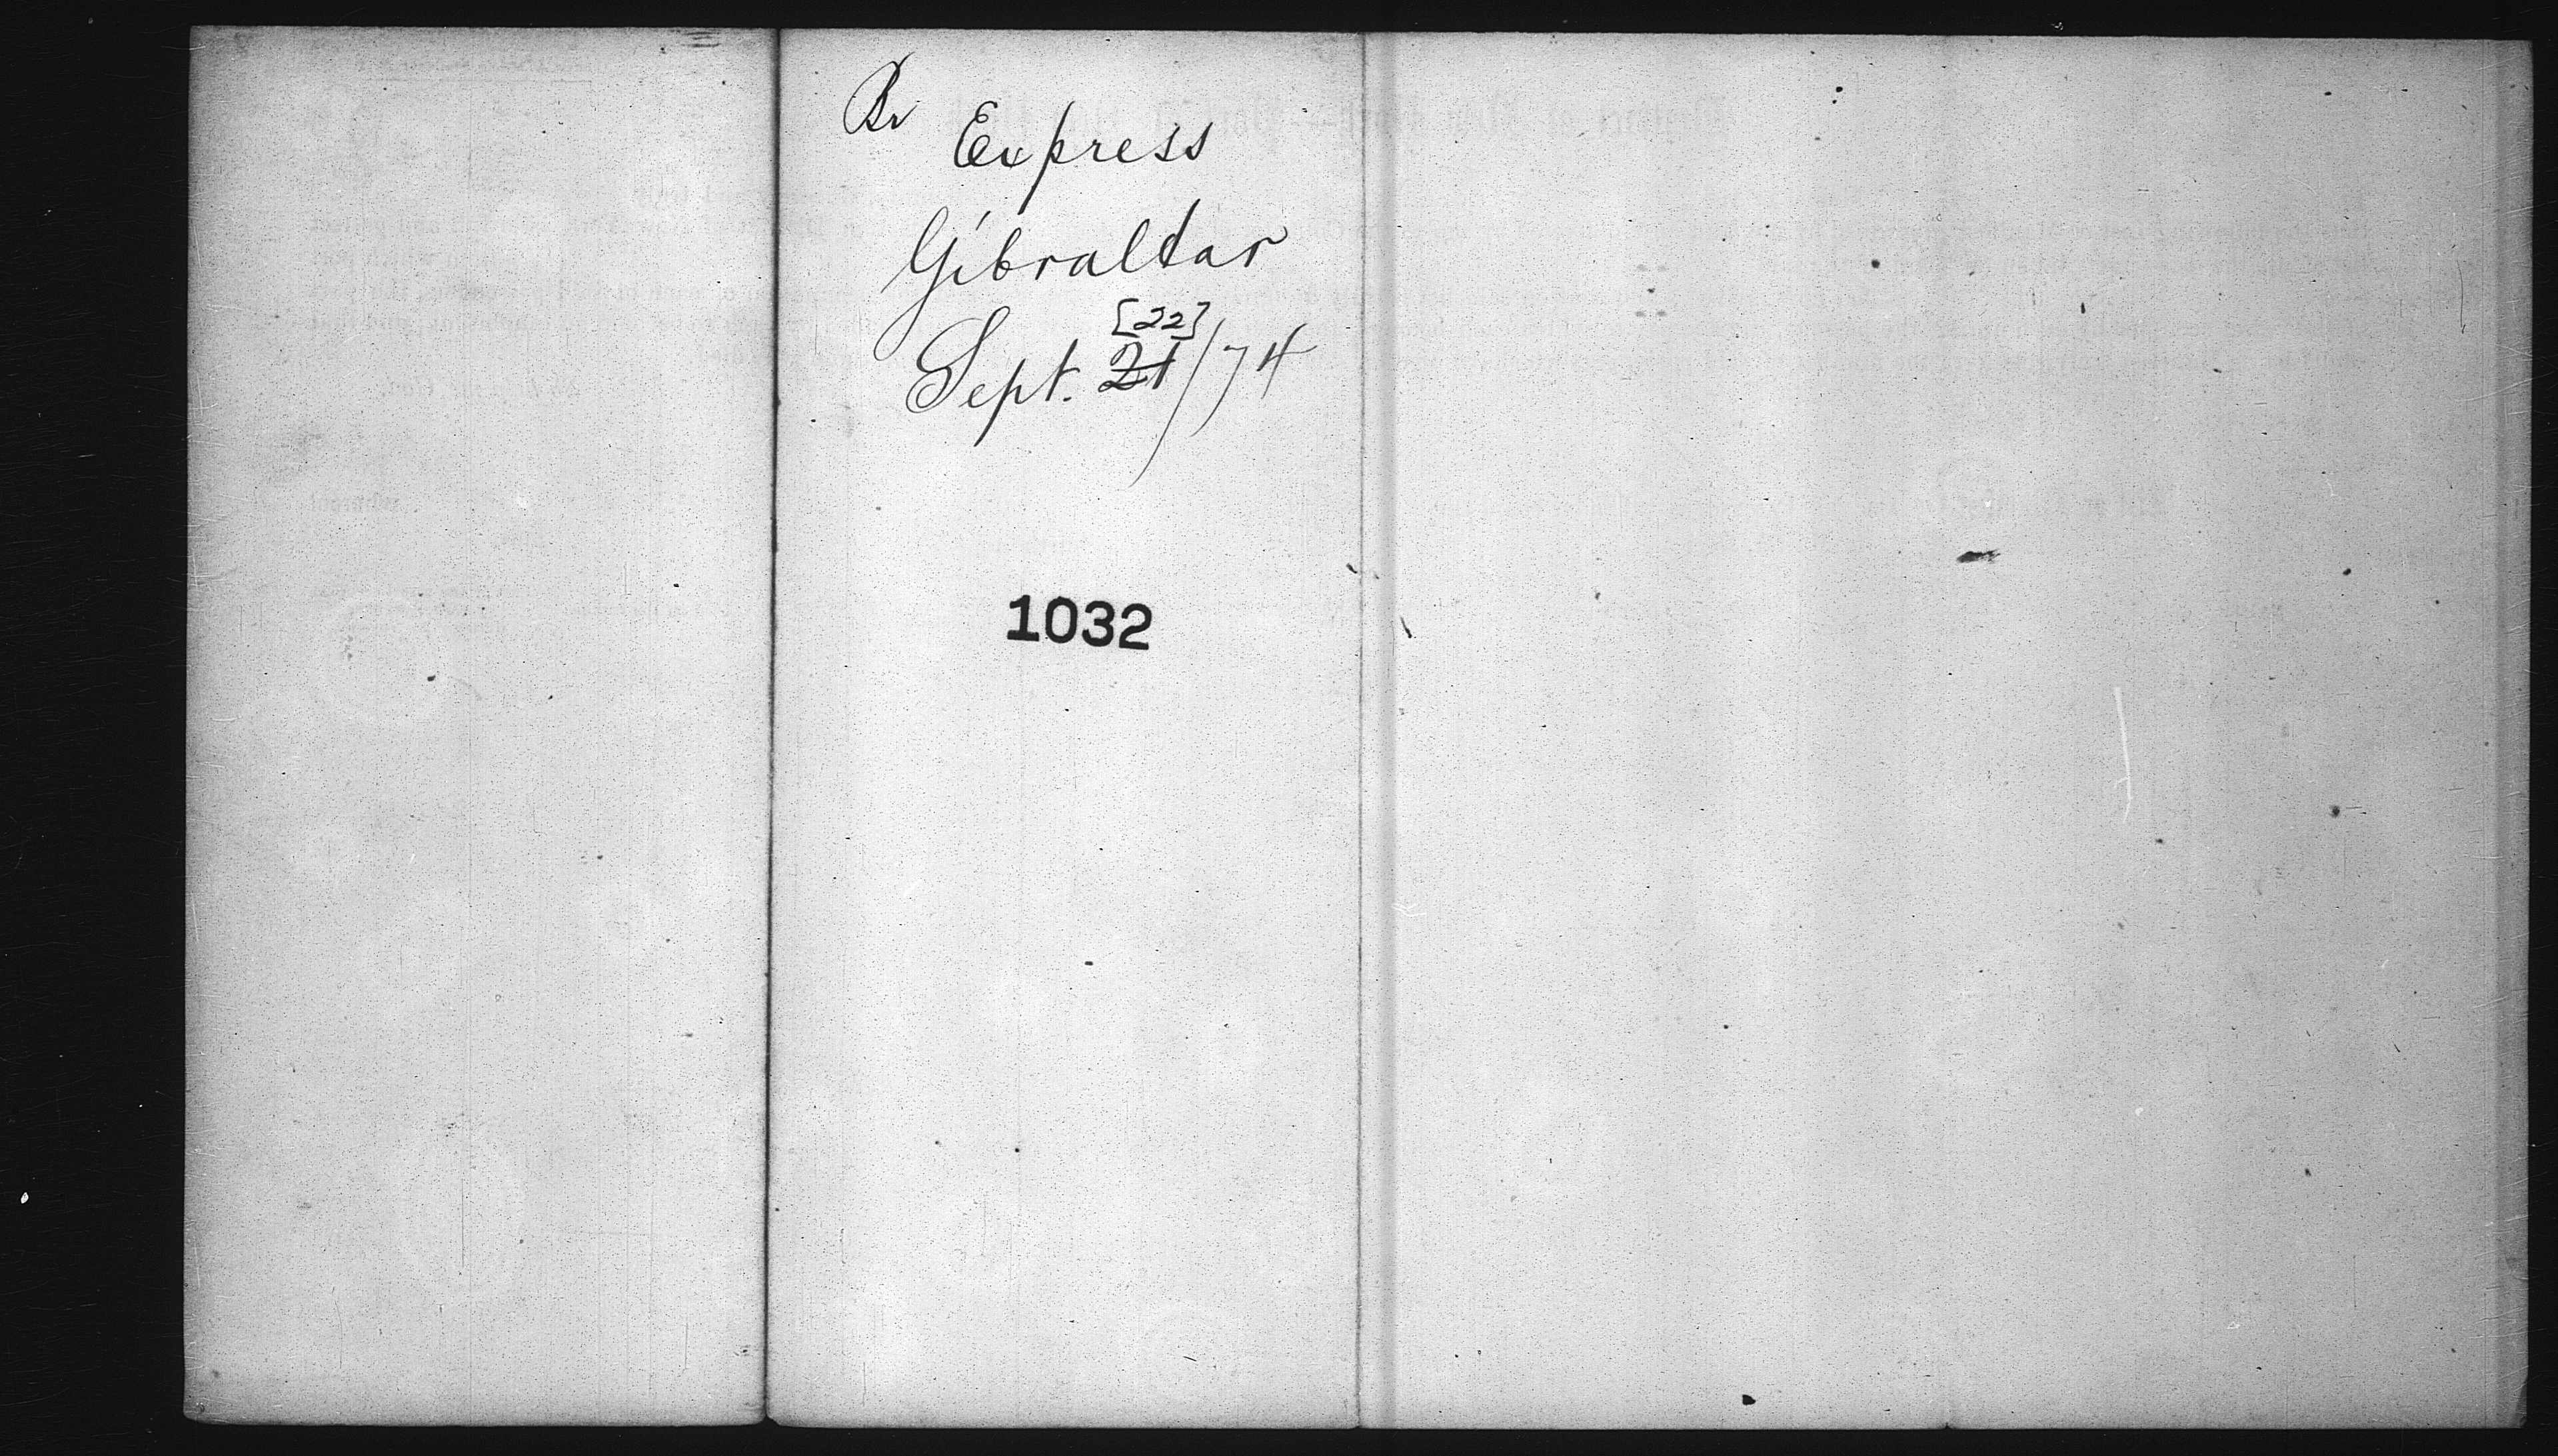 Br
Express
Gibraltar
[22]
Sept. 21/74
1032